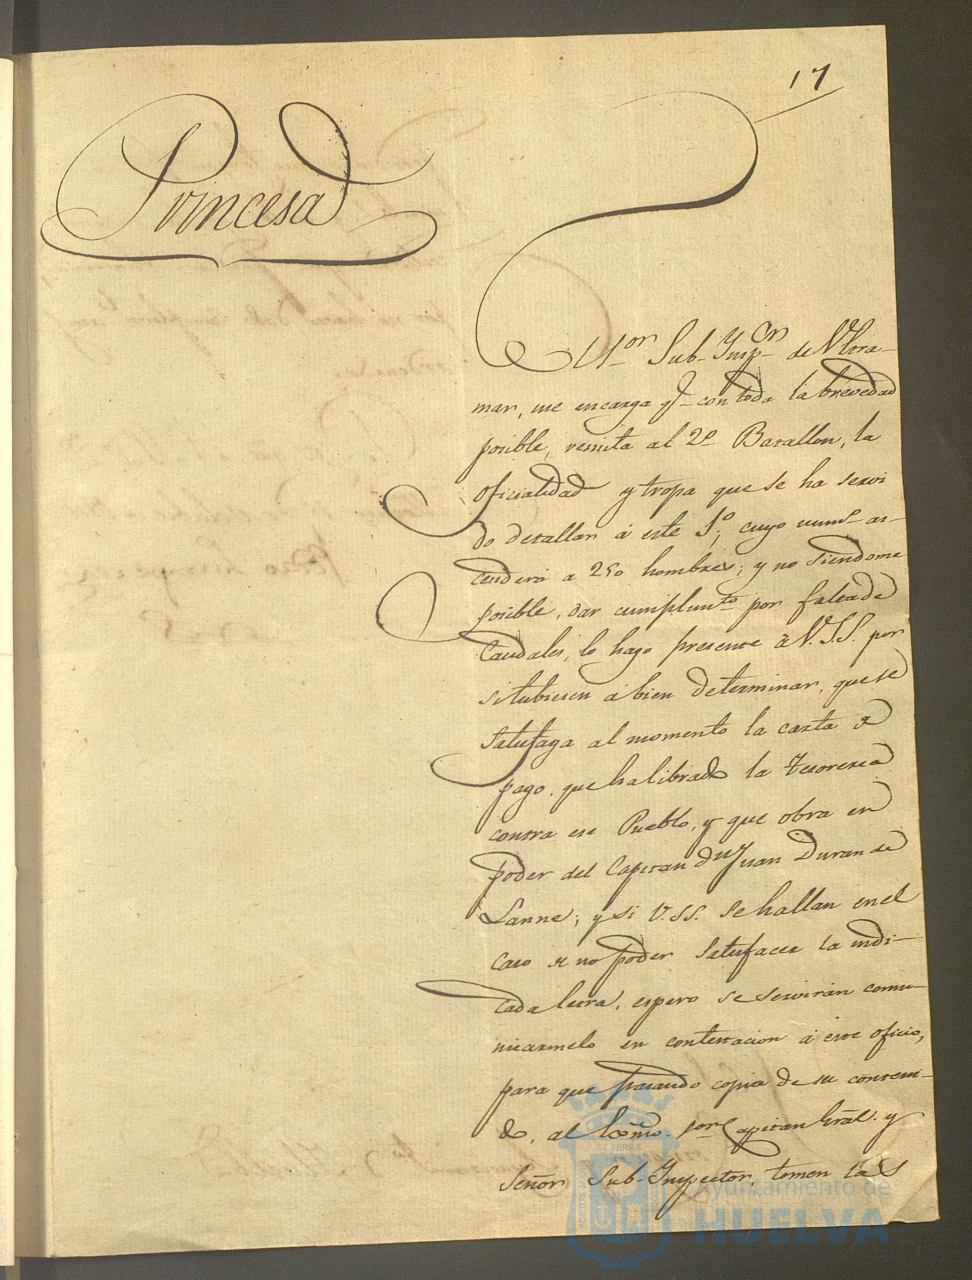 17
Princesa
Sor Sub-Inspor de Ultra-
mar, me encarga qe con toda la brevedad
posible, remita al 2o Batallon, la
oficialidad y tropa que se ha servi
do detallar á este 1o, cuyo numo as-
cenderá a 250 hombres; y no siendome
posible, dar cumplimto por falta de
Caudales, lo hago presente á V.SS. por
si tubiesen á bien determinar, que se
satisfaga al momento la carta de
pago que ha librado la Tesoreria
contra ese Pueblo, y que obra en
poder del Capitan Dn Juan Duran de
Lanne; y si V.SS. se hallan en el
caso de no poder satisfacer la indi-
cada letra, espero se serviran comu-
nicarmelo en contestacion á este oficio,
para que pasando copia de su conteni-
do, al Exmo. Sor Capitan Gral. y
Señor Sub-Inspector, tomen las
Ayuntamiento de
HUELVA